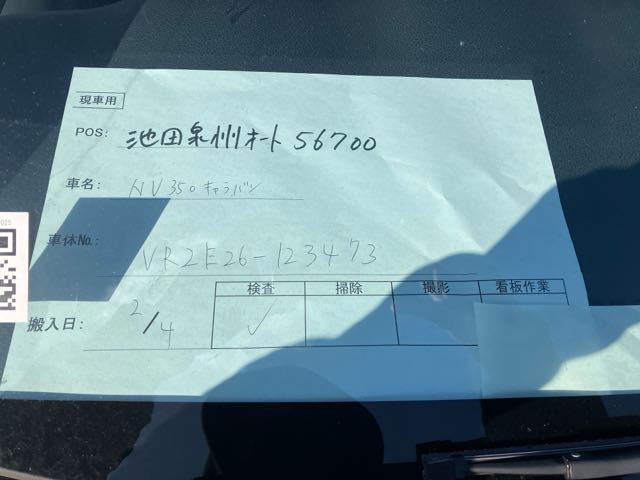 現車用
POS: 池田泉州オート 56700
車名: NV350キャラバン
車体No.: VR2E26-123473
搬入日: 2/4
検査 掃除 撮影 看板作業
✓